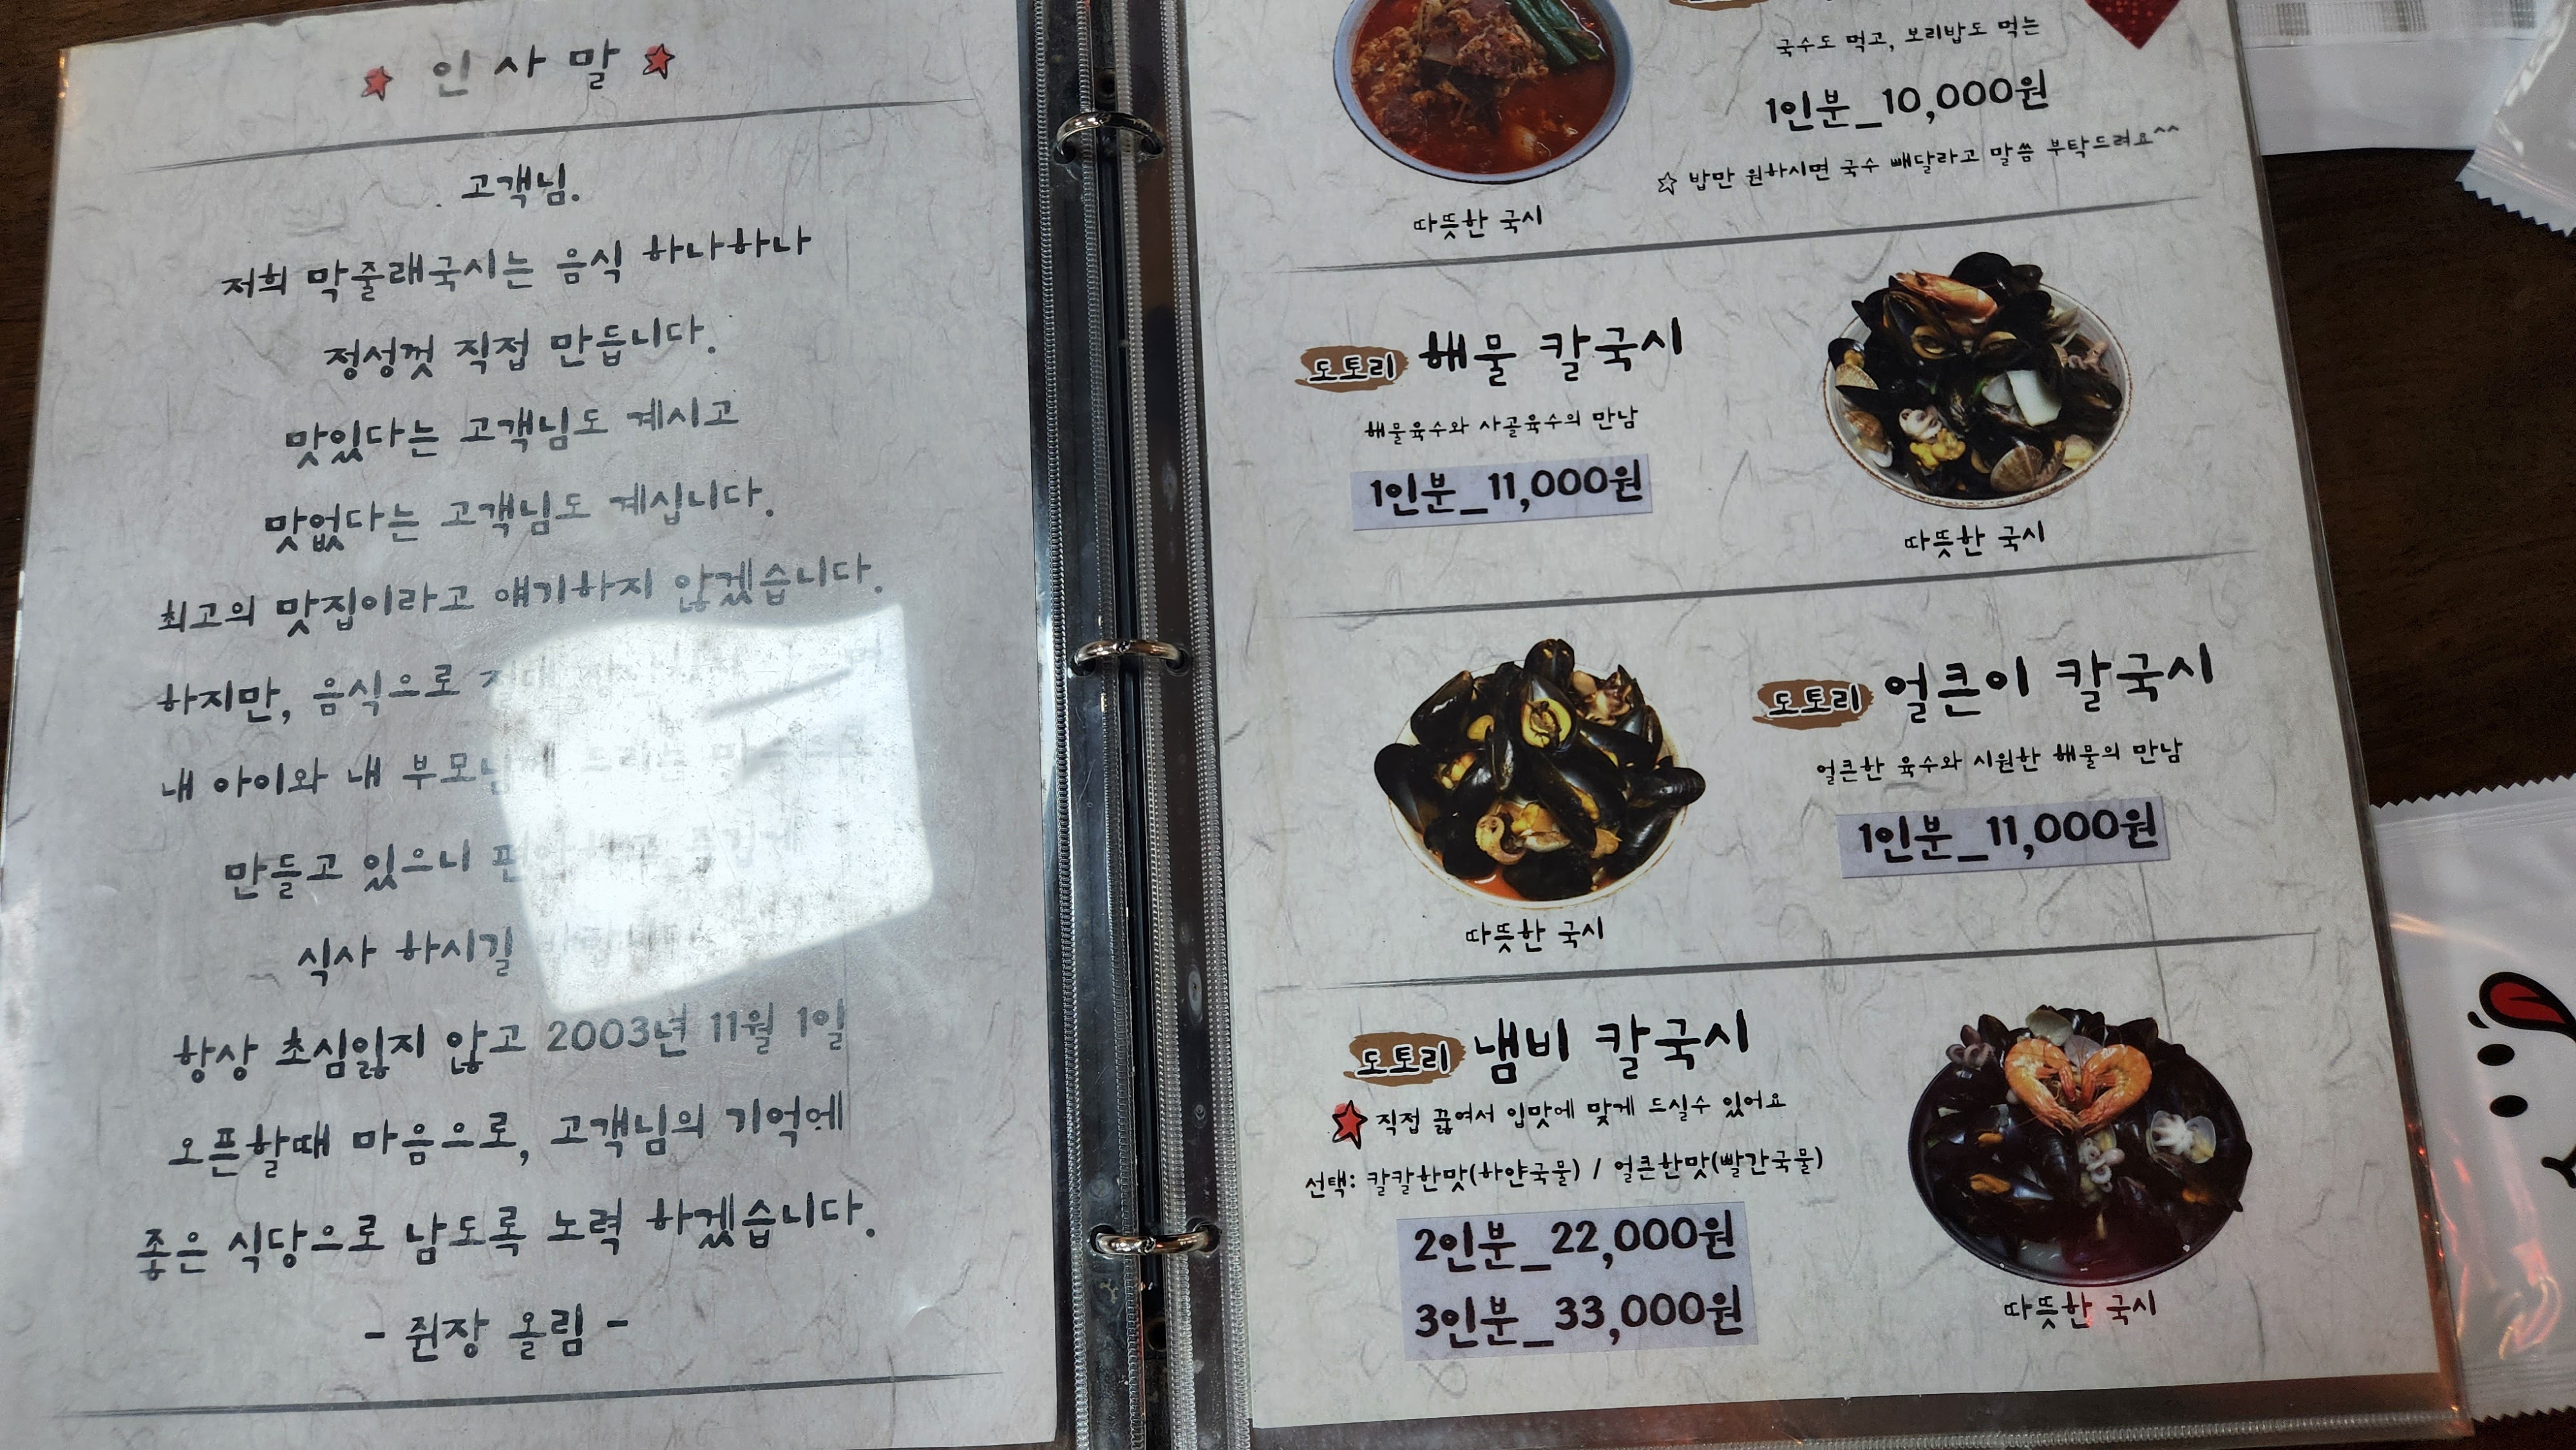 인사말
고객님.
저희 막줄래국시는 음식 하나하나
정성껏 직접 만듭니다.
맛있다는 고객님도 계시고
맛없다는 고객님도 계십니다.
최고의 맛집이라고 얘기하지 않겠습니다.
하지만, 음식으로
내 아이와 내 부모님께 드리는 마음으로
만들고 있으니 편안하고 즐겁게
식사 하시길
항상 초심잃지 않고 2003년 11월 1일
오픈할때 마음으로, 고객님의 기억에
좋은 식당으로 남도록 노력 하겠습니다.
- 쥔장 올림 -
국수도 먹고, 보리밥도 먹는
1인분_10,000원
☆ 밥만 원하시면 국수 빼달라고 말씀 부탁드려요^^
따뜻한 국시
도토리 해물 칼국시
해물육수와 사골육수의 만남
1인분_11,000원
따뜻한 국시
도토리 얼큰이 칼국시
얼큰한 육수와 시원한 해물의 만남
1인분_11,000원
따뜻한 국시
도토리 냄비 칼국시
직접 끓여서 입맛에 맞게 드실수 있어요
선택: 칼칼한맛(하얀국물) / 얼큰한맛(빨간국물)
2인분_22,000원
3인분_33,000원
따뜻한 국시